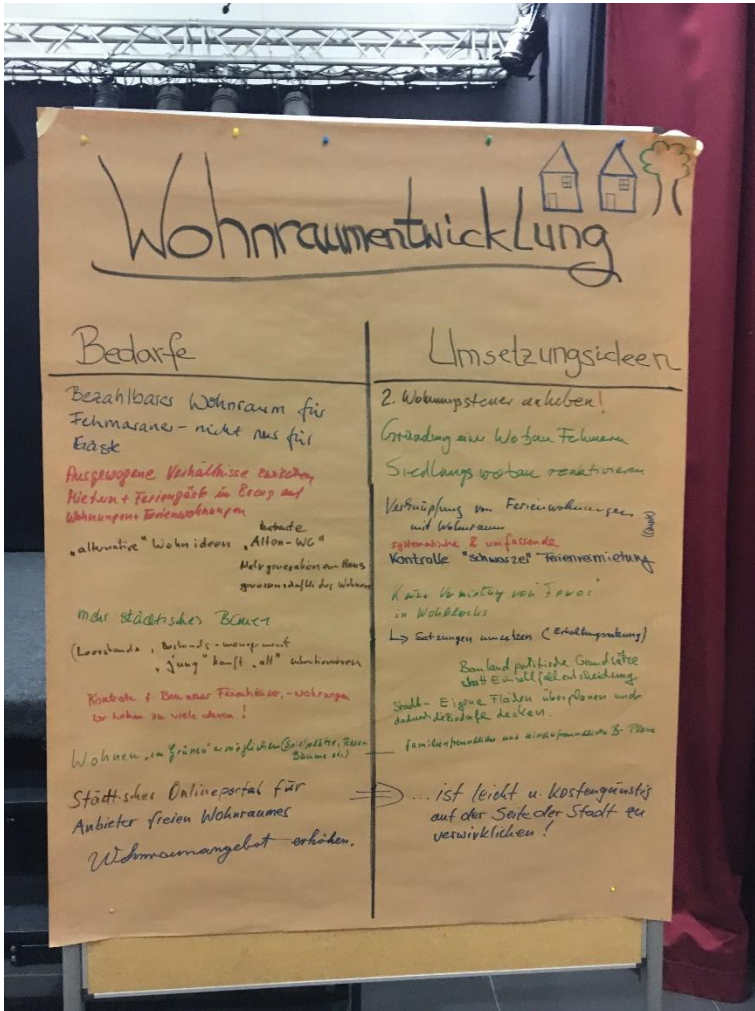 Wohnraumentwicklung
Bedarfe
Bezahlbarer Wohnraum für
Fehmaraner - nicht nur für
Gäste
Ausgewogene Verhältnisse zwischen
Mietern + Feriengäste in Bezug auf
Wohnungen + Ferienwohnungen
"alternative" Wohnideen
betreute
"Alten-WG"
Mehrgenerationen-Haus
genossenschaftliches Wohnen
mehr städtisches Bauen
(Leerstands, Bestands-management
"jung" kauft "alt"
Kontrolle + Bau neuer Ferienhäuser, -wohnungen
wir haben zu viele davon!
Wohnen "im Grünen" ermöglichen (Spielplätze, Rasen
Bäume etc.)
Städtisches Onlineportal für
Anbieter freien Wohnraumes
Wohnraumangebot erhöhen.
Umsetzungsideen
2. Wohnungssteuer anheben!
Gründung einer Wobau Fehmarn
Siedlungswobau reaktivieren
Verknüpfung von Ferienwohnungen
mit Wohnraum
systematische & umfassende
Kontrolle "schwarzer" Ferienvermietung
Keine Vermietung von "Fewos"
in Wohblocks
↳ Satzungen umsetzen (Erhaltungssatzung)
Bauland politische Grundsätze
statt Einzelfallentscheidung
Stadt-Eigene Flächen überplanen und
dadurch die Bedarfe decken.
familienfreundliche und kinderfreundliche B-Pläne
... ist leicht u. kostengünstig
auf der Seite der Stadt zu
verwirklichen!